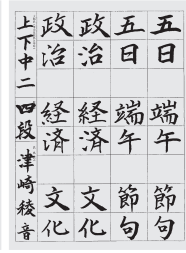 五日 端午 節句
五日 端午 節句
政治 経済 文化
政治 経済 文化
上下中二 四段 津崎稜音